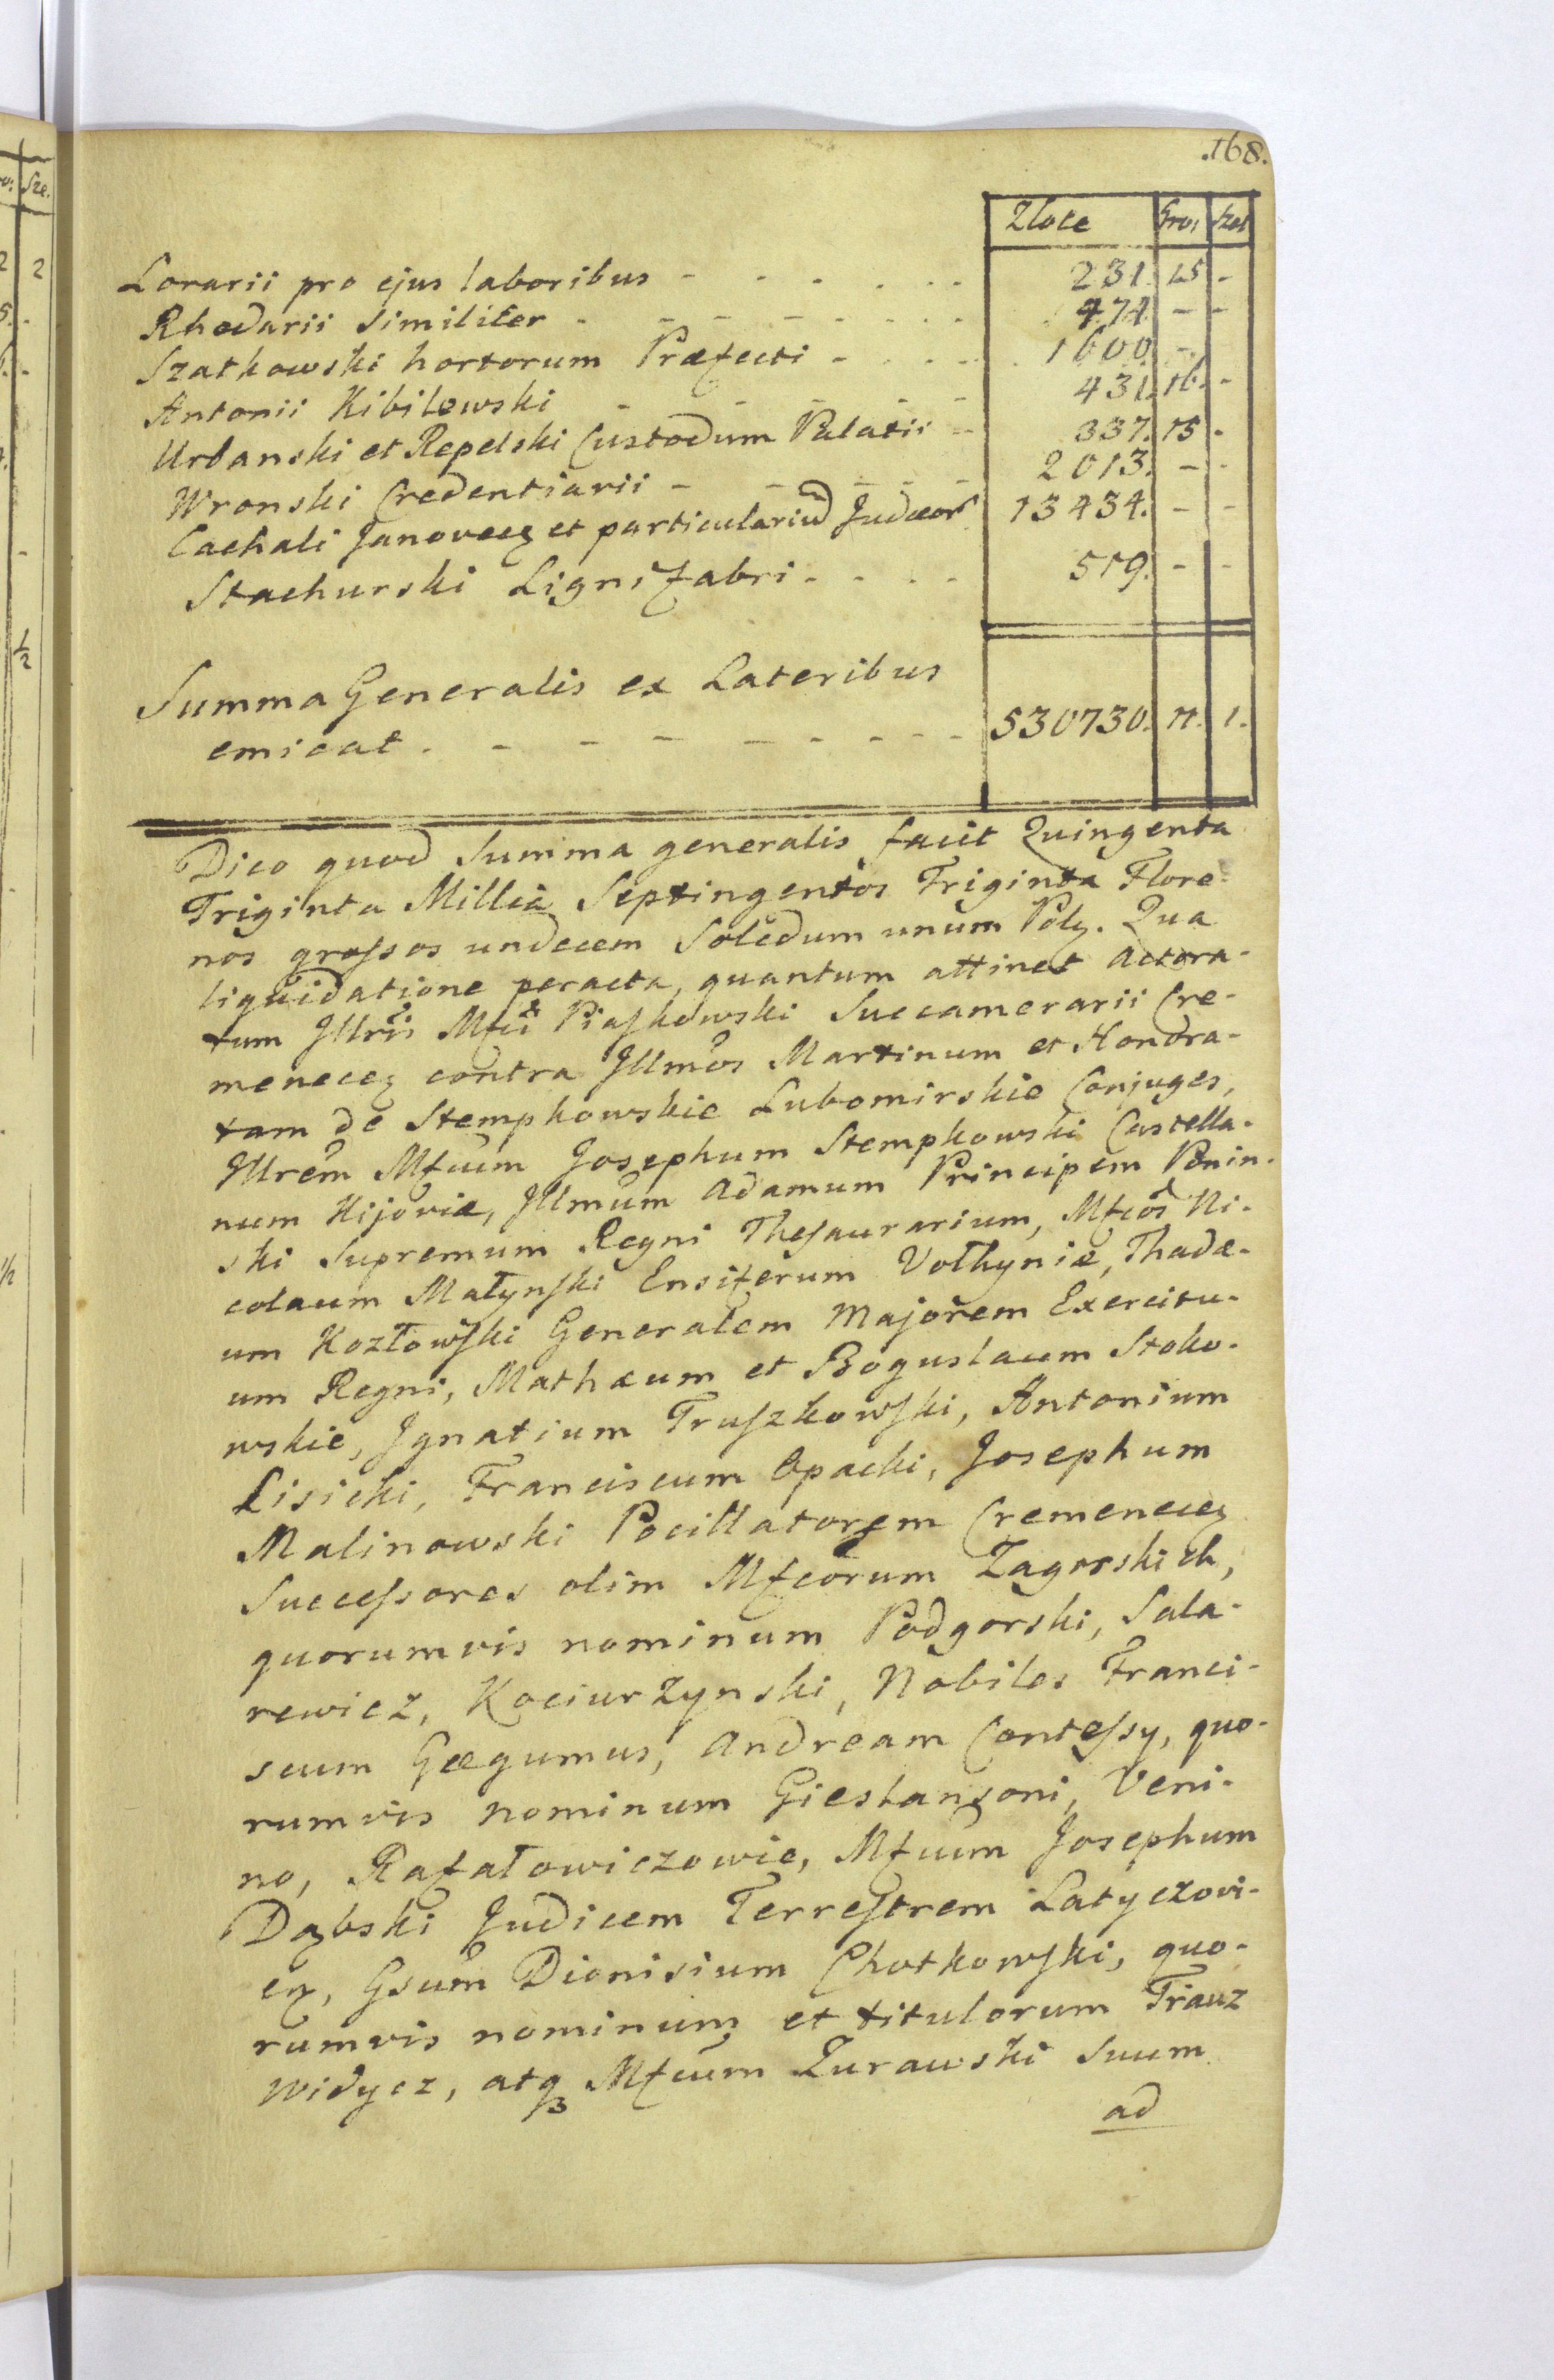 .168.
Zlote Gro: Szel
Lorarii pro ejus laboribus - - - - - - 231. 25 -
Rhedarii Similiter - - - - - - - - 474. - -
Szatkowski hortorum Præfecti - - - - 1600 -
Antonii Kibilewski - - - - - 431. 16. -
Urbanski et Repelski Custodum Palatii - 337. 15 -
Wronski Credentiarii - - - - - 2013. - -
Cachali Janovecz et particulariũ Judæor 13434. - -
Stachurski Lignifabri - - - - 519. - -
Summa Generalis ex Lateribus
emicat - - - - - - - - - 530730. 11. 1.
Dico quod Summa generalis facit Quingenta
Triginta Millia Septingentos Triginta Flore-
nos grossos undecem Solidum unum Polz. Qua
liquidatione peracta, quantum attinet actora-
tum Jllris Mfci Piaskowski Succamerarii Cre-
menecez contra Jllmos Martinum et Honora-
tam de Stempkowskie Lubomirskie Conjuges,
Jllrem Mfcum Josephum Stempkowski Castella-
num Kijoviæ, Jllmum Adamum Principem Ponin-
ski Supremum Regni Thesaurarium, Mfcos Ni-
colaum Małynski Ensiferum Volhyniæ, Thadæ-
um Kozłowski Generalem Majorem Exercitu-
um Regni, Mathæum et Boguslaum Stoko-
wskie, Jgnatium Truszkowski, Antonium
Lisicki, Franciscum Opacki, Josephum
Malinowski Pocillatorem Cremenecez
Successores olim Mfcorum Zagorskich,
quorumvis nominum Podgorski, Sala-
rewicz, Kociurzynski, Nobiles Franci-
scum Gægumus, Andream Contessy, quo-
rumvis nominum Gieslansoni, Veni-
no, Rafałowiczowie, Mfcum Josephum
Dąbski Judicem Terrestrem Latyczovi-
ez, Gsum Dionisium Chotkowski, quo-
rumvis nominum et titulorum Trauz
widycz, atq₃ Mfcum Zurawski Suum
ad